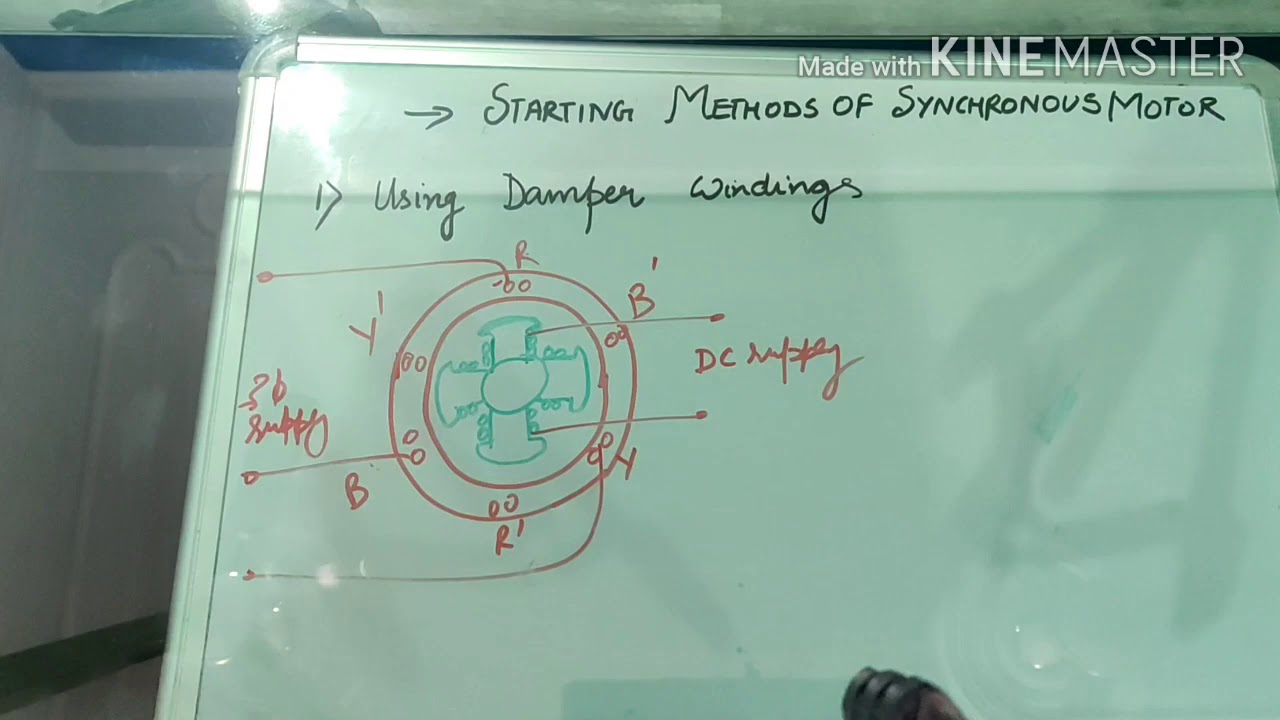 Made with KINEMASTER
→ STARTING METHODS OF SYNCHRONOUS MOTOR
1) Using Damper Windings
R
B'
Y'
DC supply
3ϕ
supply
B
Y
R'